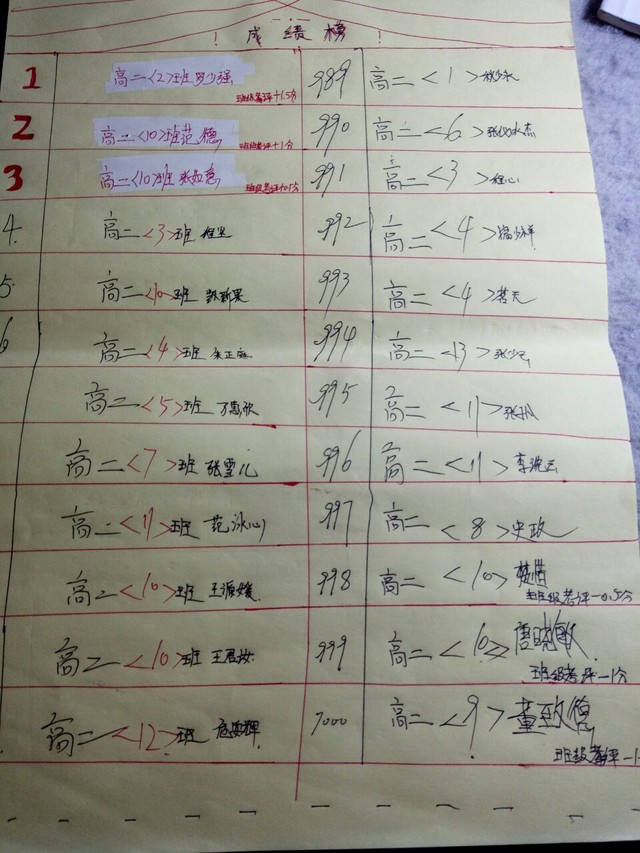 ! 成 绩 榜 !
1 高二<2>班罗少强 989 高二<1>
班级考评+1.5分
2 高二<10>班范德 990 高二<6>
班级考评+1分
3 高二<10>班张如意 991 高二<3>程心
班级考评+0.5分
4 高二<3>班 992 高二<4>
5 高二<10>班 993 高二<4>
6 高二<4>班 994 高二<13>张少云
高二<5>班万惠欣 995 高二<11>
高二<7>班张雪儿 996 高二<11>李琬云
高二<11>班范泳心 997 高二<8>史政
高二<10>班王源媛 998 高二<10>楚惜
班级考评-0.5分
高二<10>班王君妆 999 高二<10>唐晓敏
班级考评-1分
高二<12>班 1000 高二<9>董致德
班级考评-1